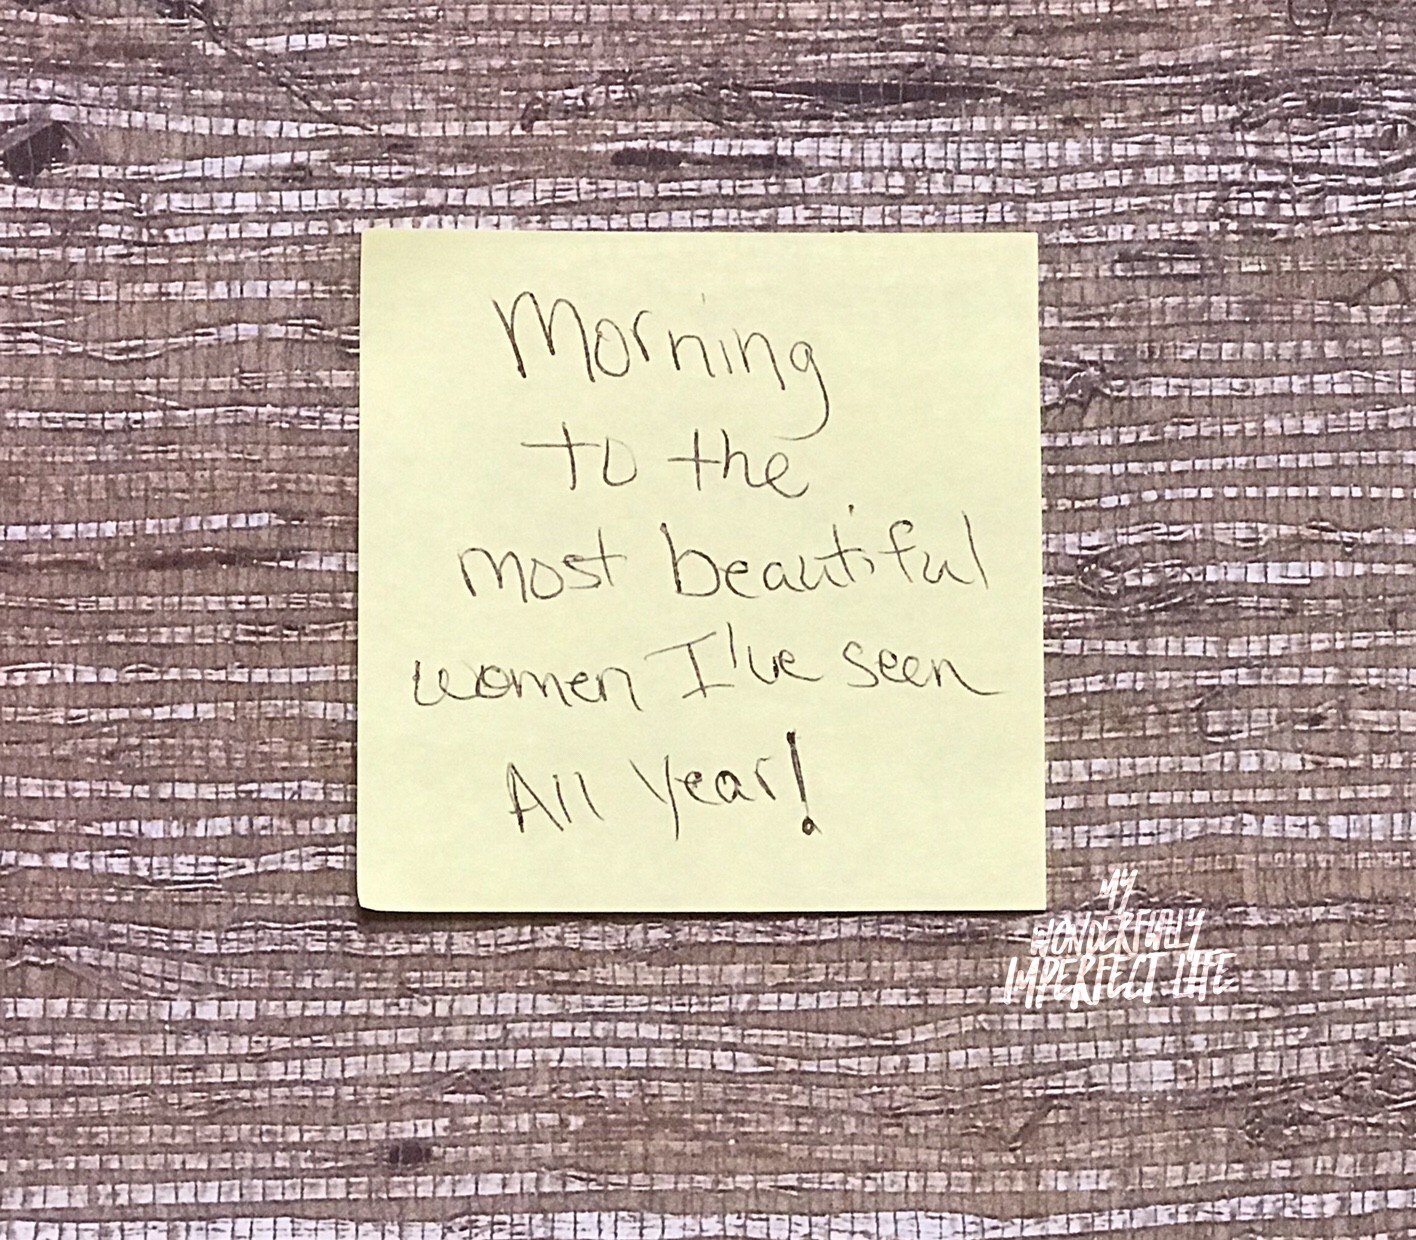 Morning
to the
most beautiful
women I've seen
All year!
MY
WONDERFULLY
IMPERFECT LIFE